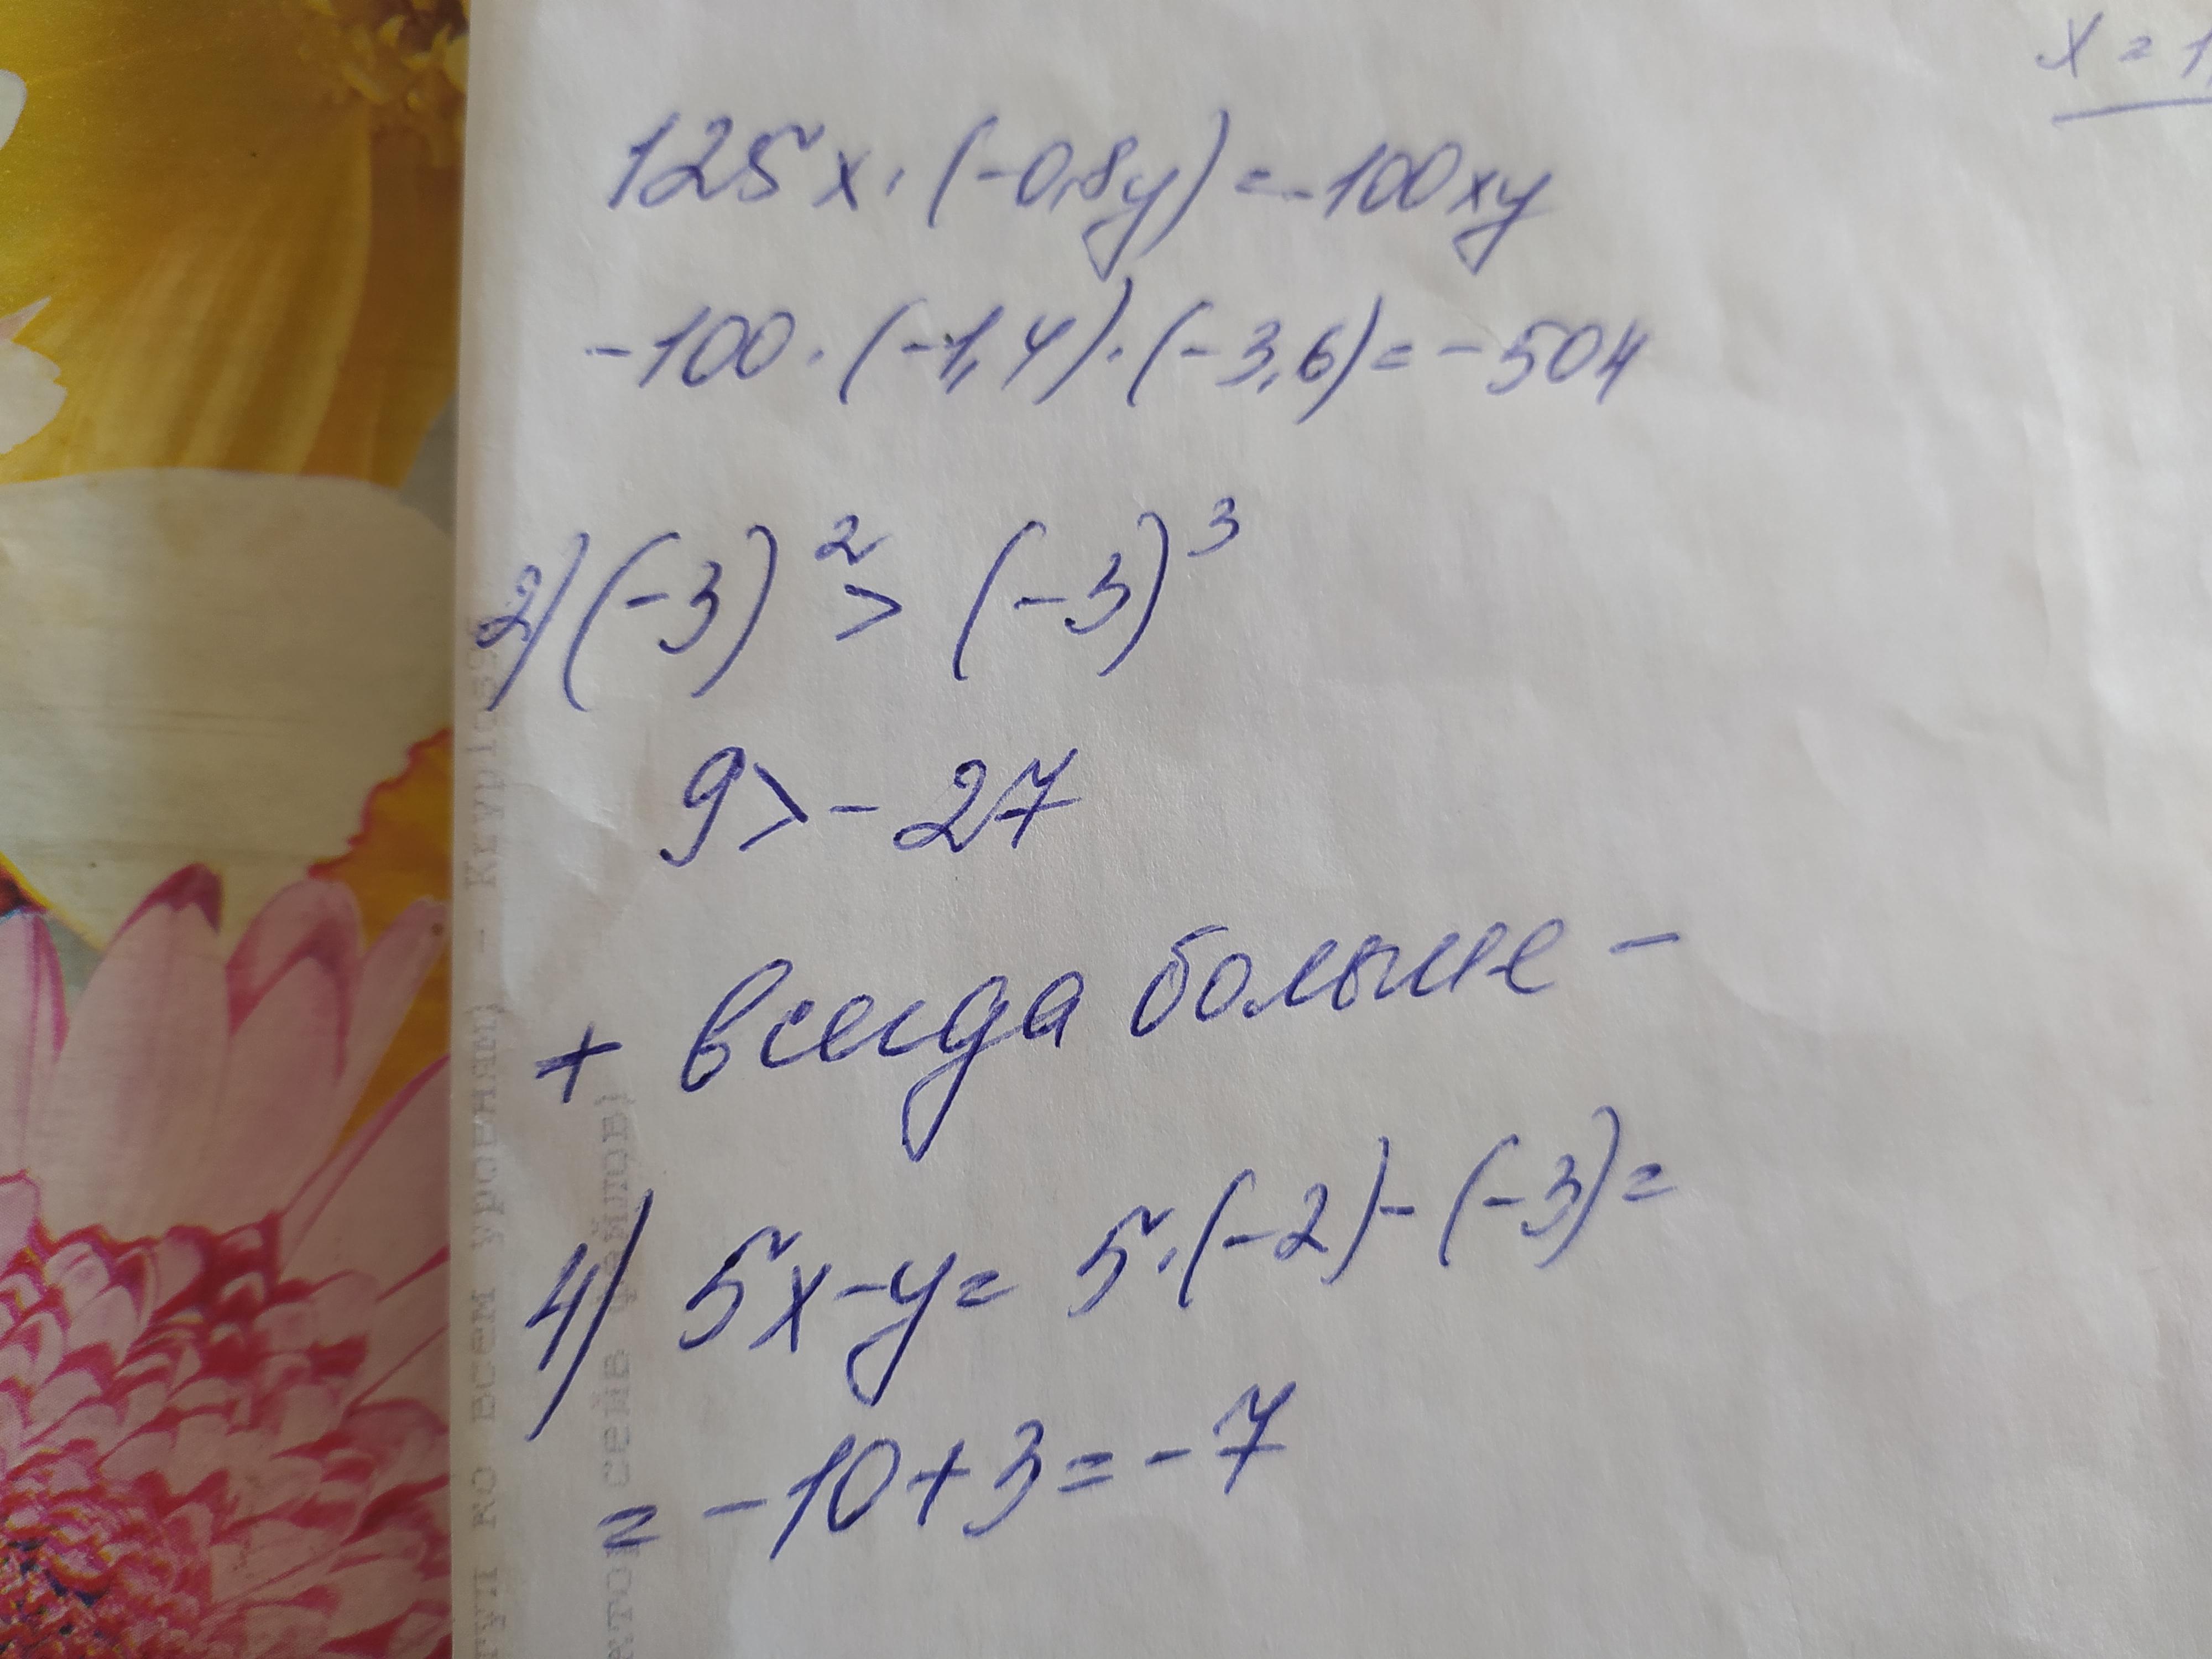 x = 1,
125x · (-0,8y) = -100xy
-100 · (-1,4) · (-3,6) = -504
2) (-3)² > (-3)³
9 > -27
+ всегда больше -
4) 5x - y = 5 · (-2) - (-3) =
= -10 + 3 = -7
туп ко всем уровням) - Kryptos
сейв файлов)